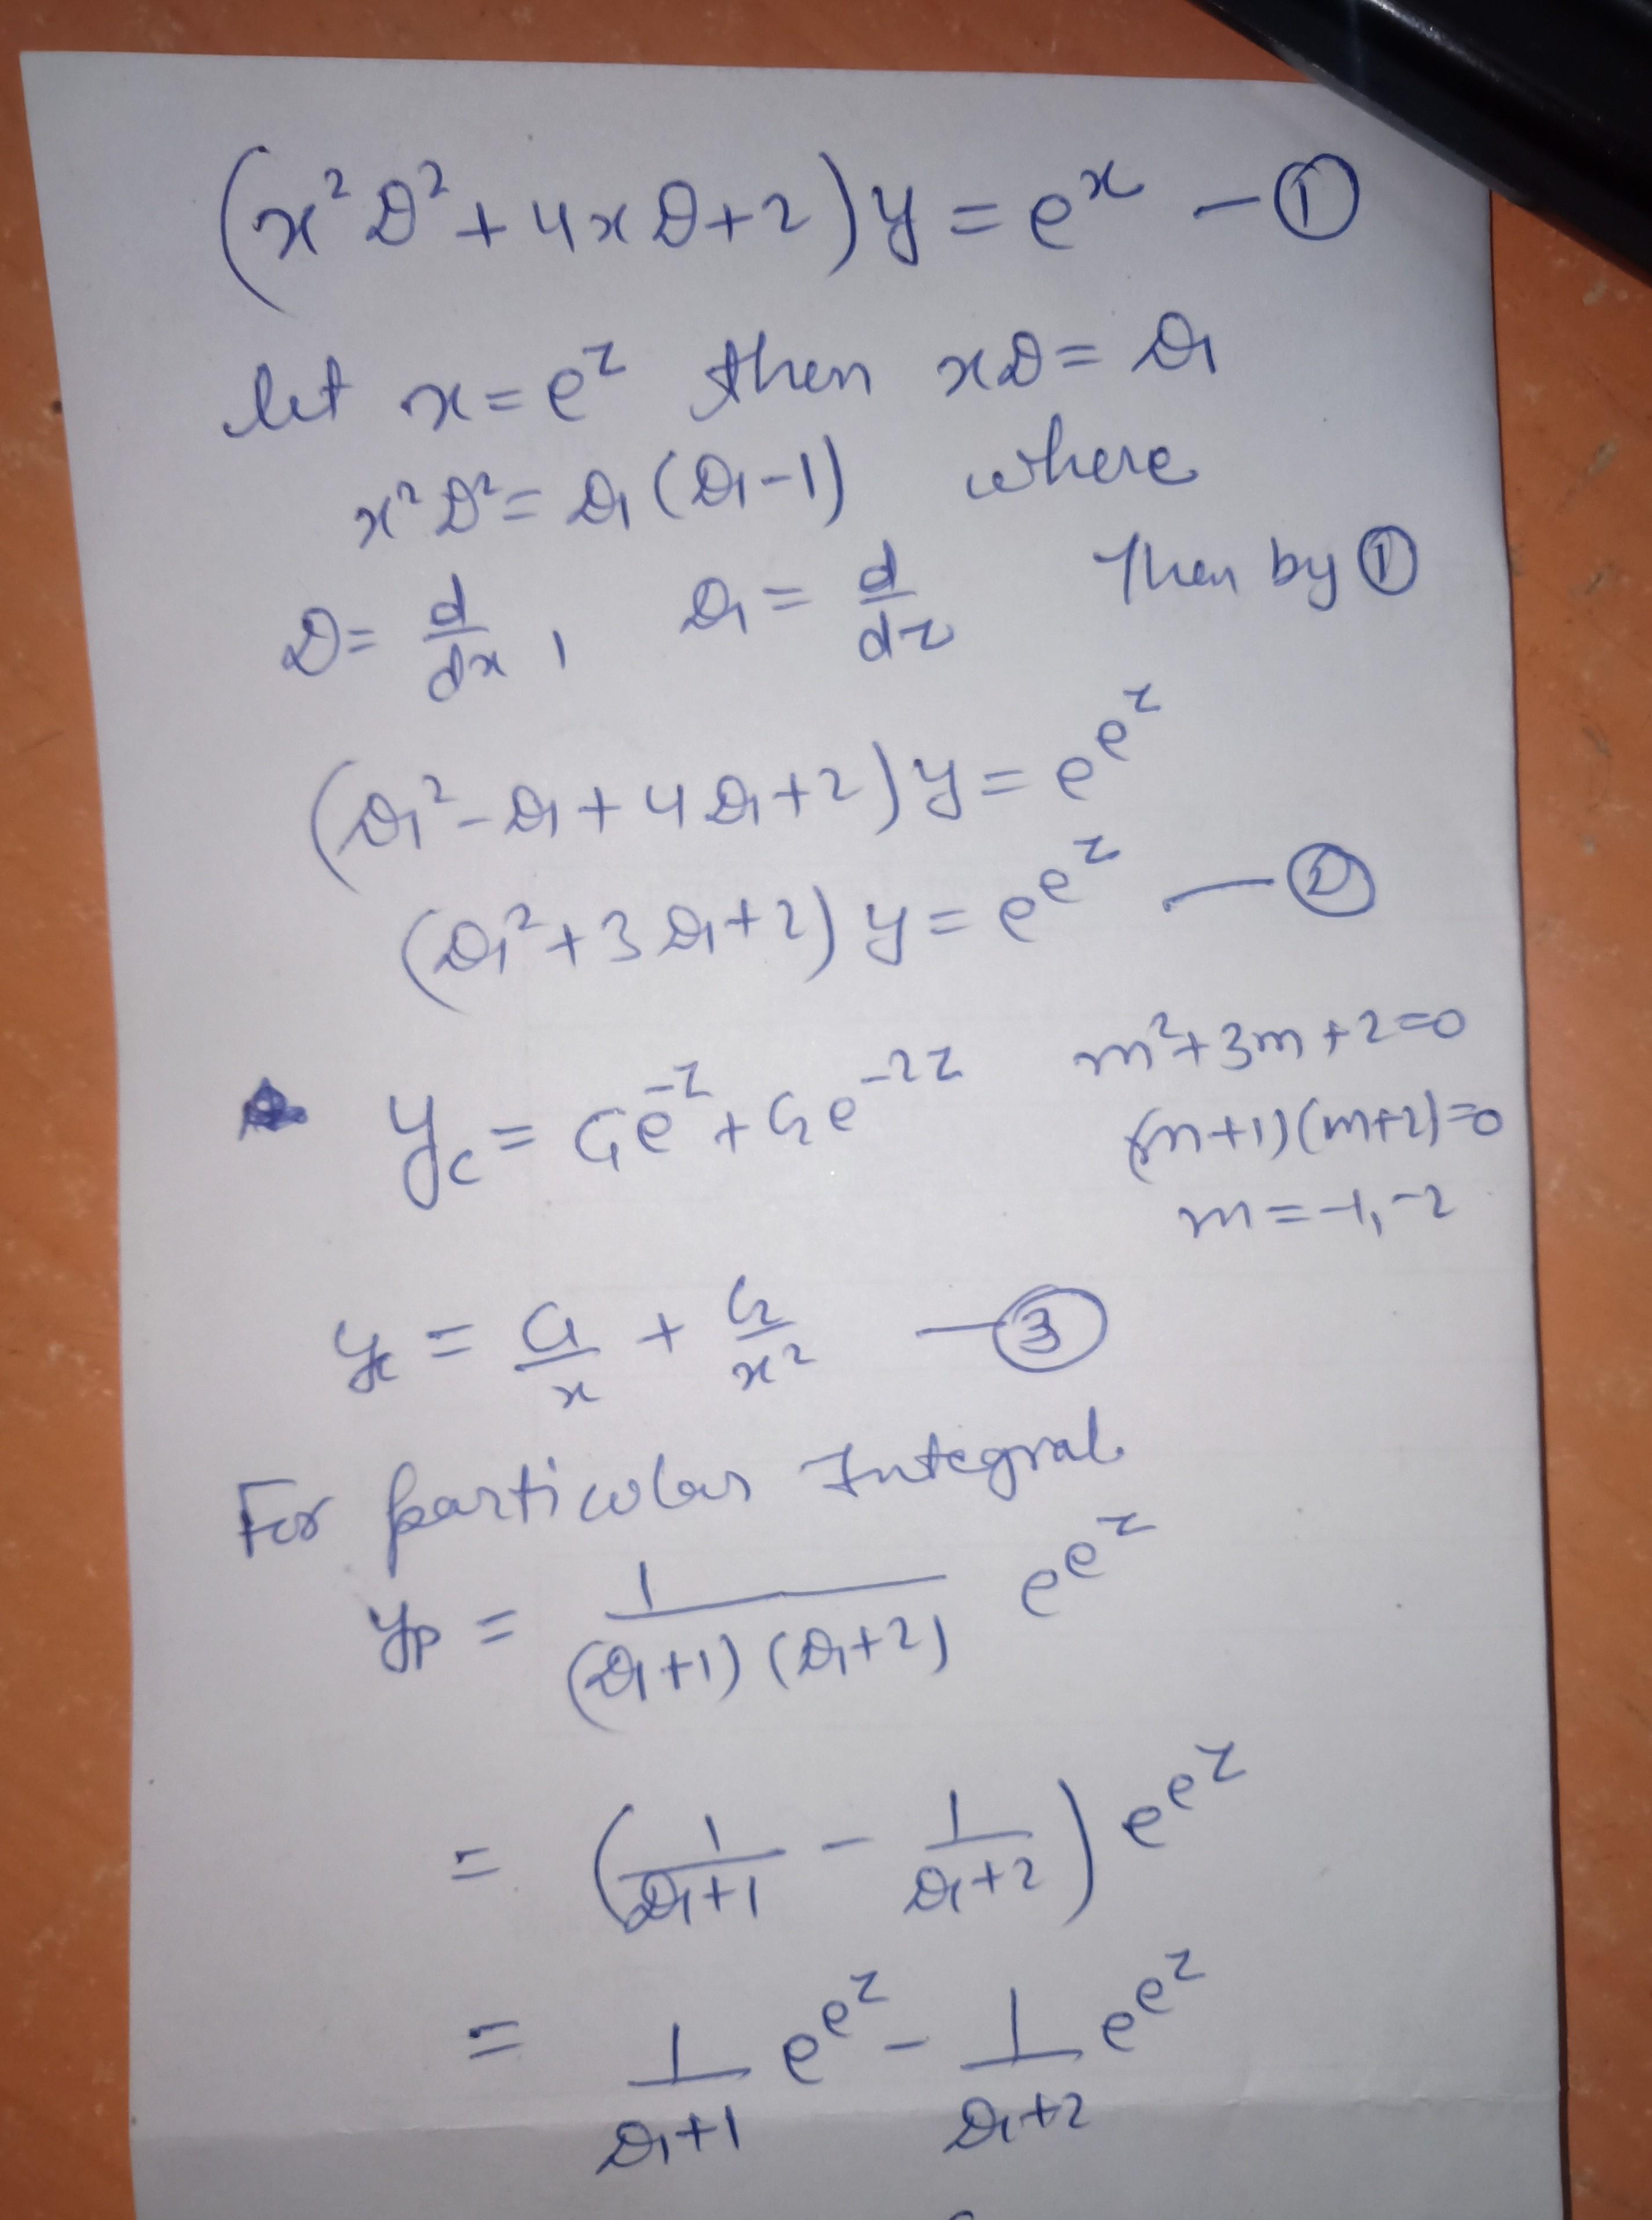 (x²D²+4xD+2)y = e^x — ①
let x = e^z then xD = D₁
x²D² = D₁(D₁-1) where
D = d/dx , D₁ = d/dz Then by ①
(D₁²-D₁+4D₁+2)y = e^e^z
(D₁²+3D₁+2)y = e^e^z — ②
y_c = C₁e^-z + C₂e^-2z m²+3m+2=0
(m+1)(m+2)=0
m = -1, -2
y_c = C₁/x + C₂/x² — ③
For particular Integral
y_p = 1/((D₁+1)(D₁+2)) e^e^z
= (1/(D₁+1) - 1/(D₁+2)) e^e^z
= 1/(D₁+1) e^e^z - 1/(D₁+2) e^e^z